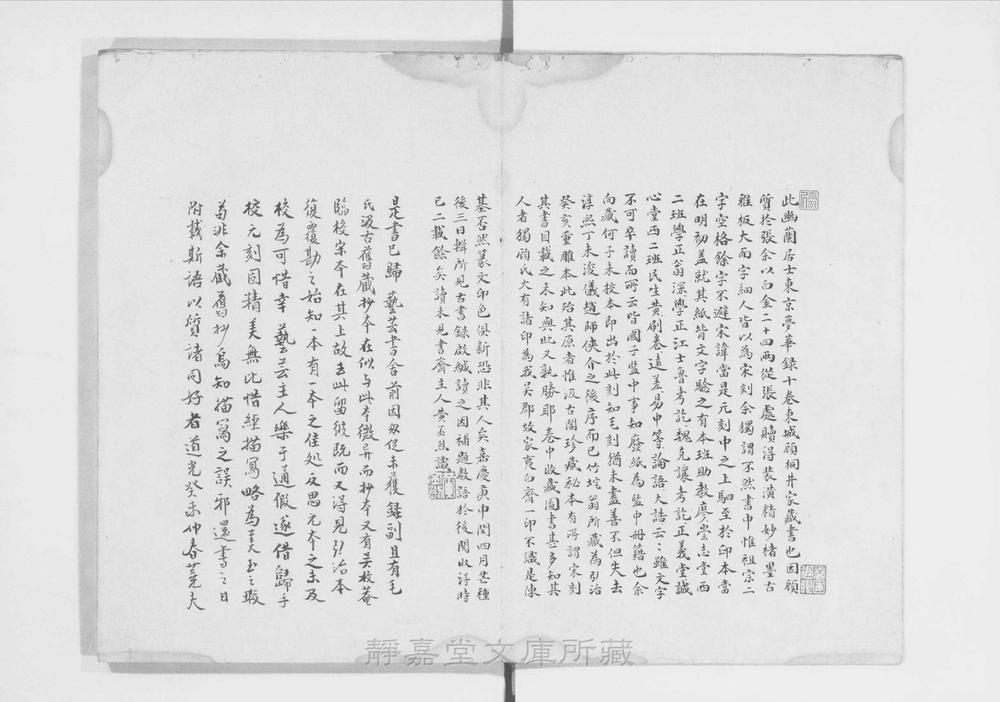 此幽蘭居士東京夢華錄十卷東城顧桐井家藏書也因顧
質於張余以白金二十四兩從張處贖得裝潢精妙楮墨古
雅板大而字細人皆以為宋刻余獨謂不然書中惟祖宗二
字空格餘字不避宋諱當是元刻中之上駟至於印本當
在明初蓋就其紙背文字驗之有本班助教廖崇志堂西
二班學正翁深學正江士魯考訖魏克讓考訖正義堂誠
心堂西二班民生黃刷卷遠差易中等論語大誥云云雖文字
不可卒讀而所云皆國子監中事知廢紙為監中冊籍也余
向藏何子未校本即出於此刻知毛刻猶未盡善不但失去
淳熙丁未浚儀趙師俠介之後序而已竹垞翁所藏為弘治
癸亥重雕本此殆其原者惟汲古閣珍藏秘本有所謂宋刻
其書目載之未知與此又孰勝耶卷中收藏圖書甚多知其
人者獨顧氏大有諸印為我吳郡故家夷白齋一印不識是陳
基否然篆文印色俱新恐非其人矣嘉慶庚申閏四月芒種
後三日輯所見古書錄啟緘讀之因補題數語於後閱收得時
已二載餘矣讀未見書齋主人黃丕烈識
是書已歸藝芸書舍前因匆促未獲錄副且有毛
氏汲古舊藏抄本在似与此本微异而抄本又有吴枚菴
臨校宋本在其上故去此留彼既而又得見弘治本
復覆勘之始知一本有一本之佳処反思元本之未及
校為可惜幸藝芸主人樂于通假遂借歸手
校元刻固精美無比惜經描寫略為美玉之瑕
苟非余藏舊抄烏知描寫之誤邪還書之日
附載斯語以質諸同好者道光癸未仲春蕘夫
靜嘉堂文庫所藏